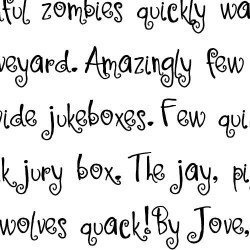 ful zombies quickly wa
eyard. Amazingly few
ide jukeboxes. Few qui
k jury box. The jay, pi
wolves quack!By Jove,